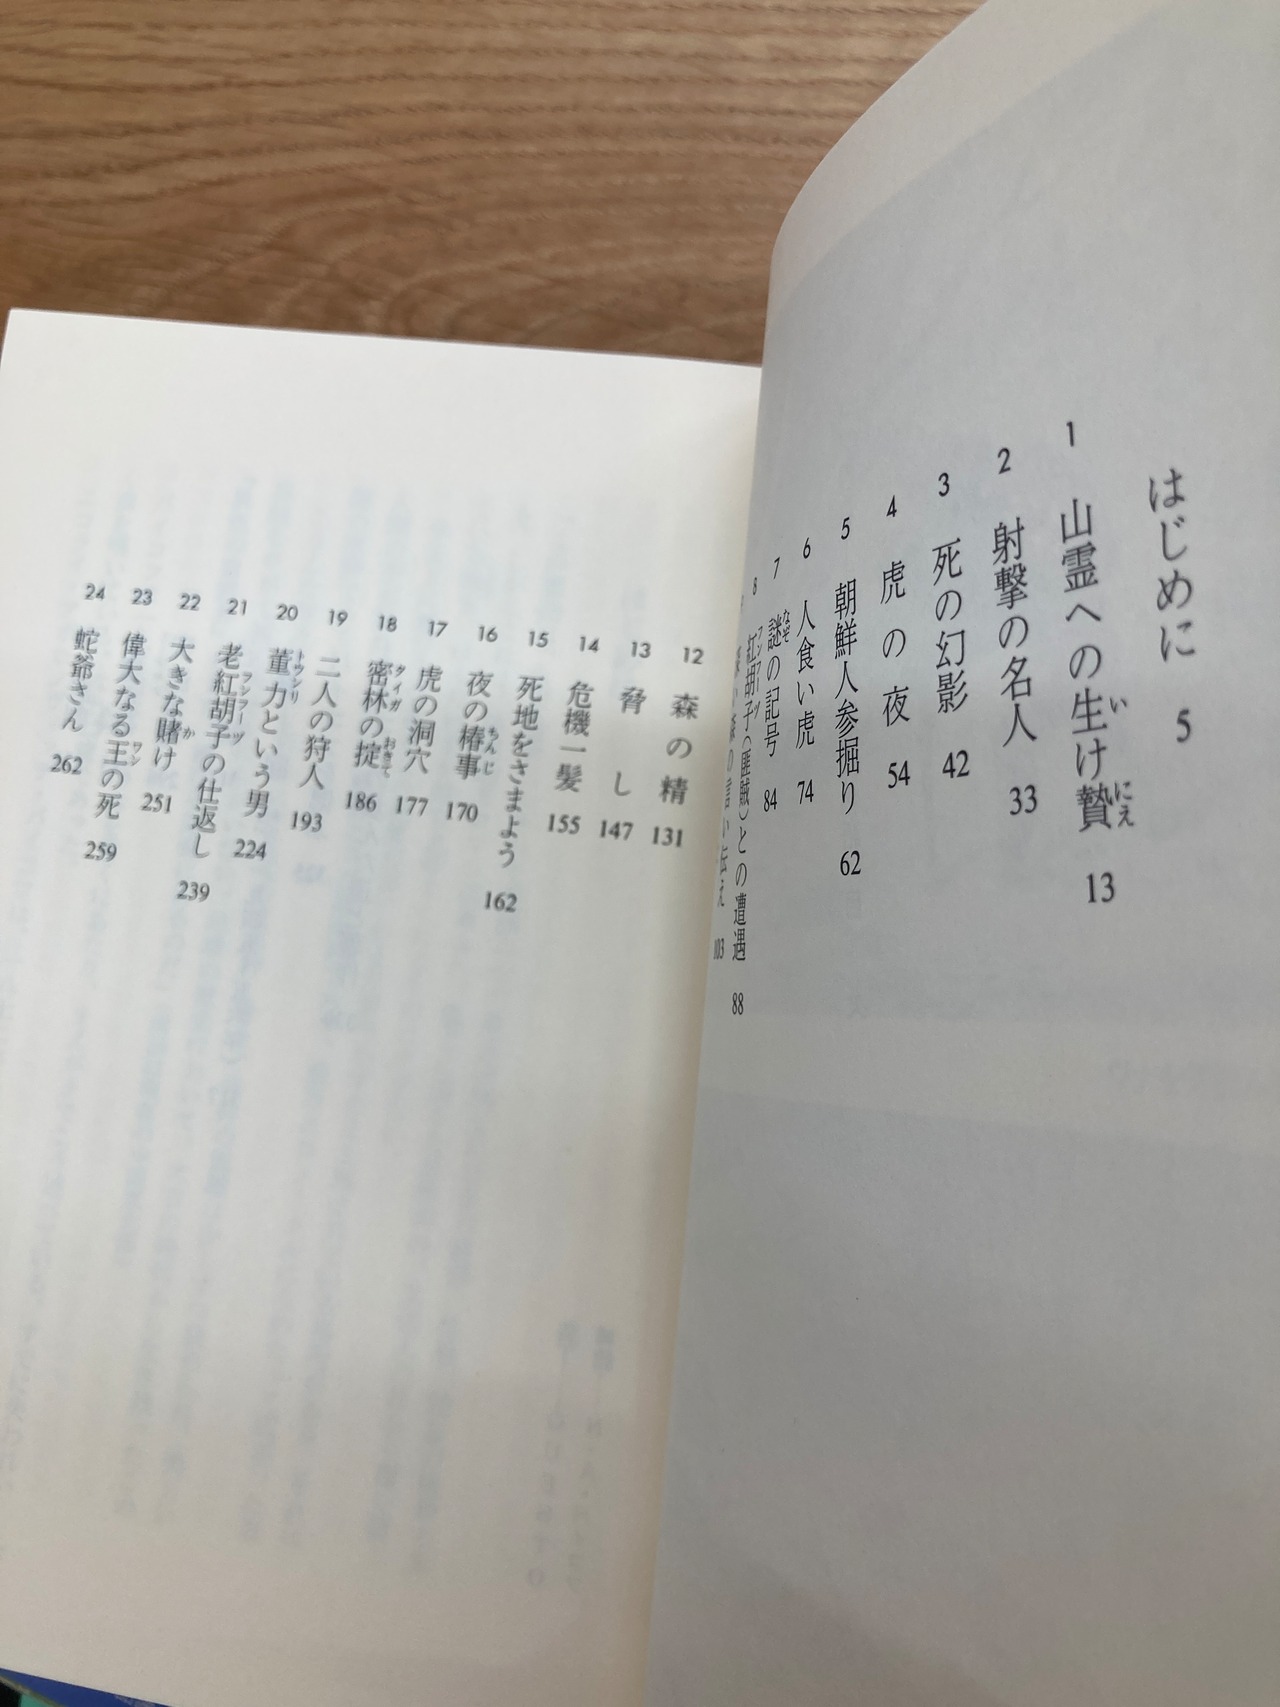 はじめに 5
1 山霊への生け贄 13
2 射撃の名人 33
3 死の幻影 42
4 虎の夜 54
5 朝鮮人参掘り 62
6 人食い虎 74
7 謎の記号 84
8 紅胡子(匪賊)との遭遇 88
い森の言い伝え 103
12 森の精 131
13 脅し 147
14 危機一髪 155
15 死地をさまよう 162
16 夜の椿事 170
17 虎の洞穴 177
18 密林の掟 186
19 二人の狩人 193
20 董力という男 224
21 老紅胡子の仕返し 239
22 大きな賭け 251
23 偉大なる王の死 259
24 蛇爺さん 262